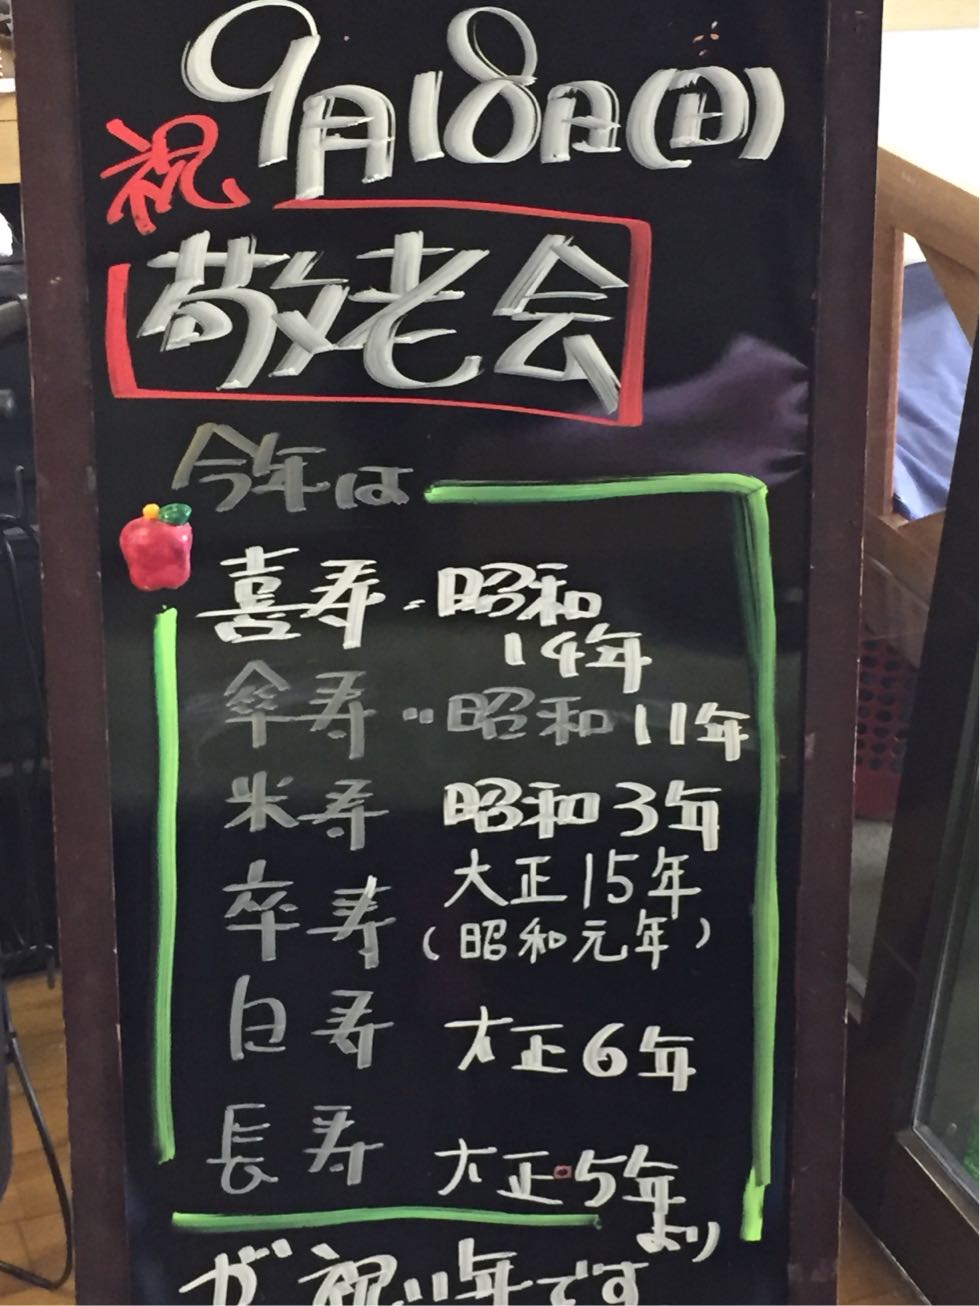 9月18日(日)
祝
敬老会
今年は
喜寿・昭和
14年
傘寿・・昭和11年
米寿 昭和3年
卒寿 大正15年
(昭和元年)
白寿 大正6年
長寿 大正5年
より
が祝い年です